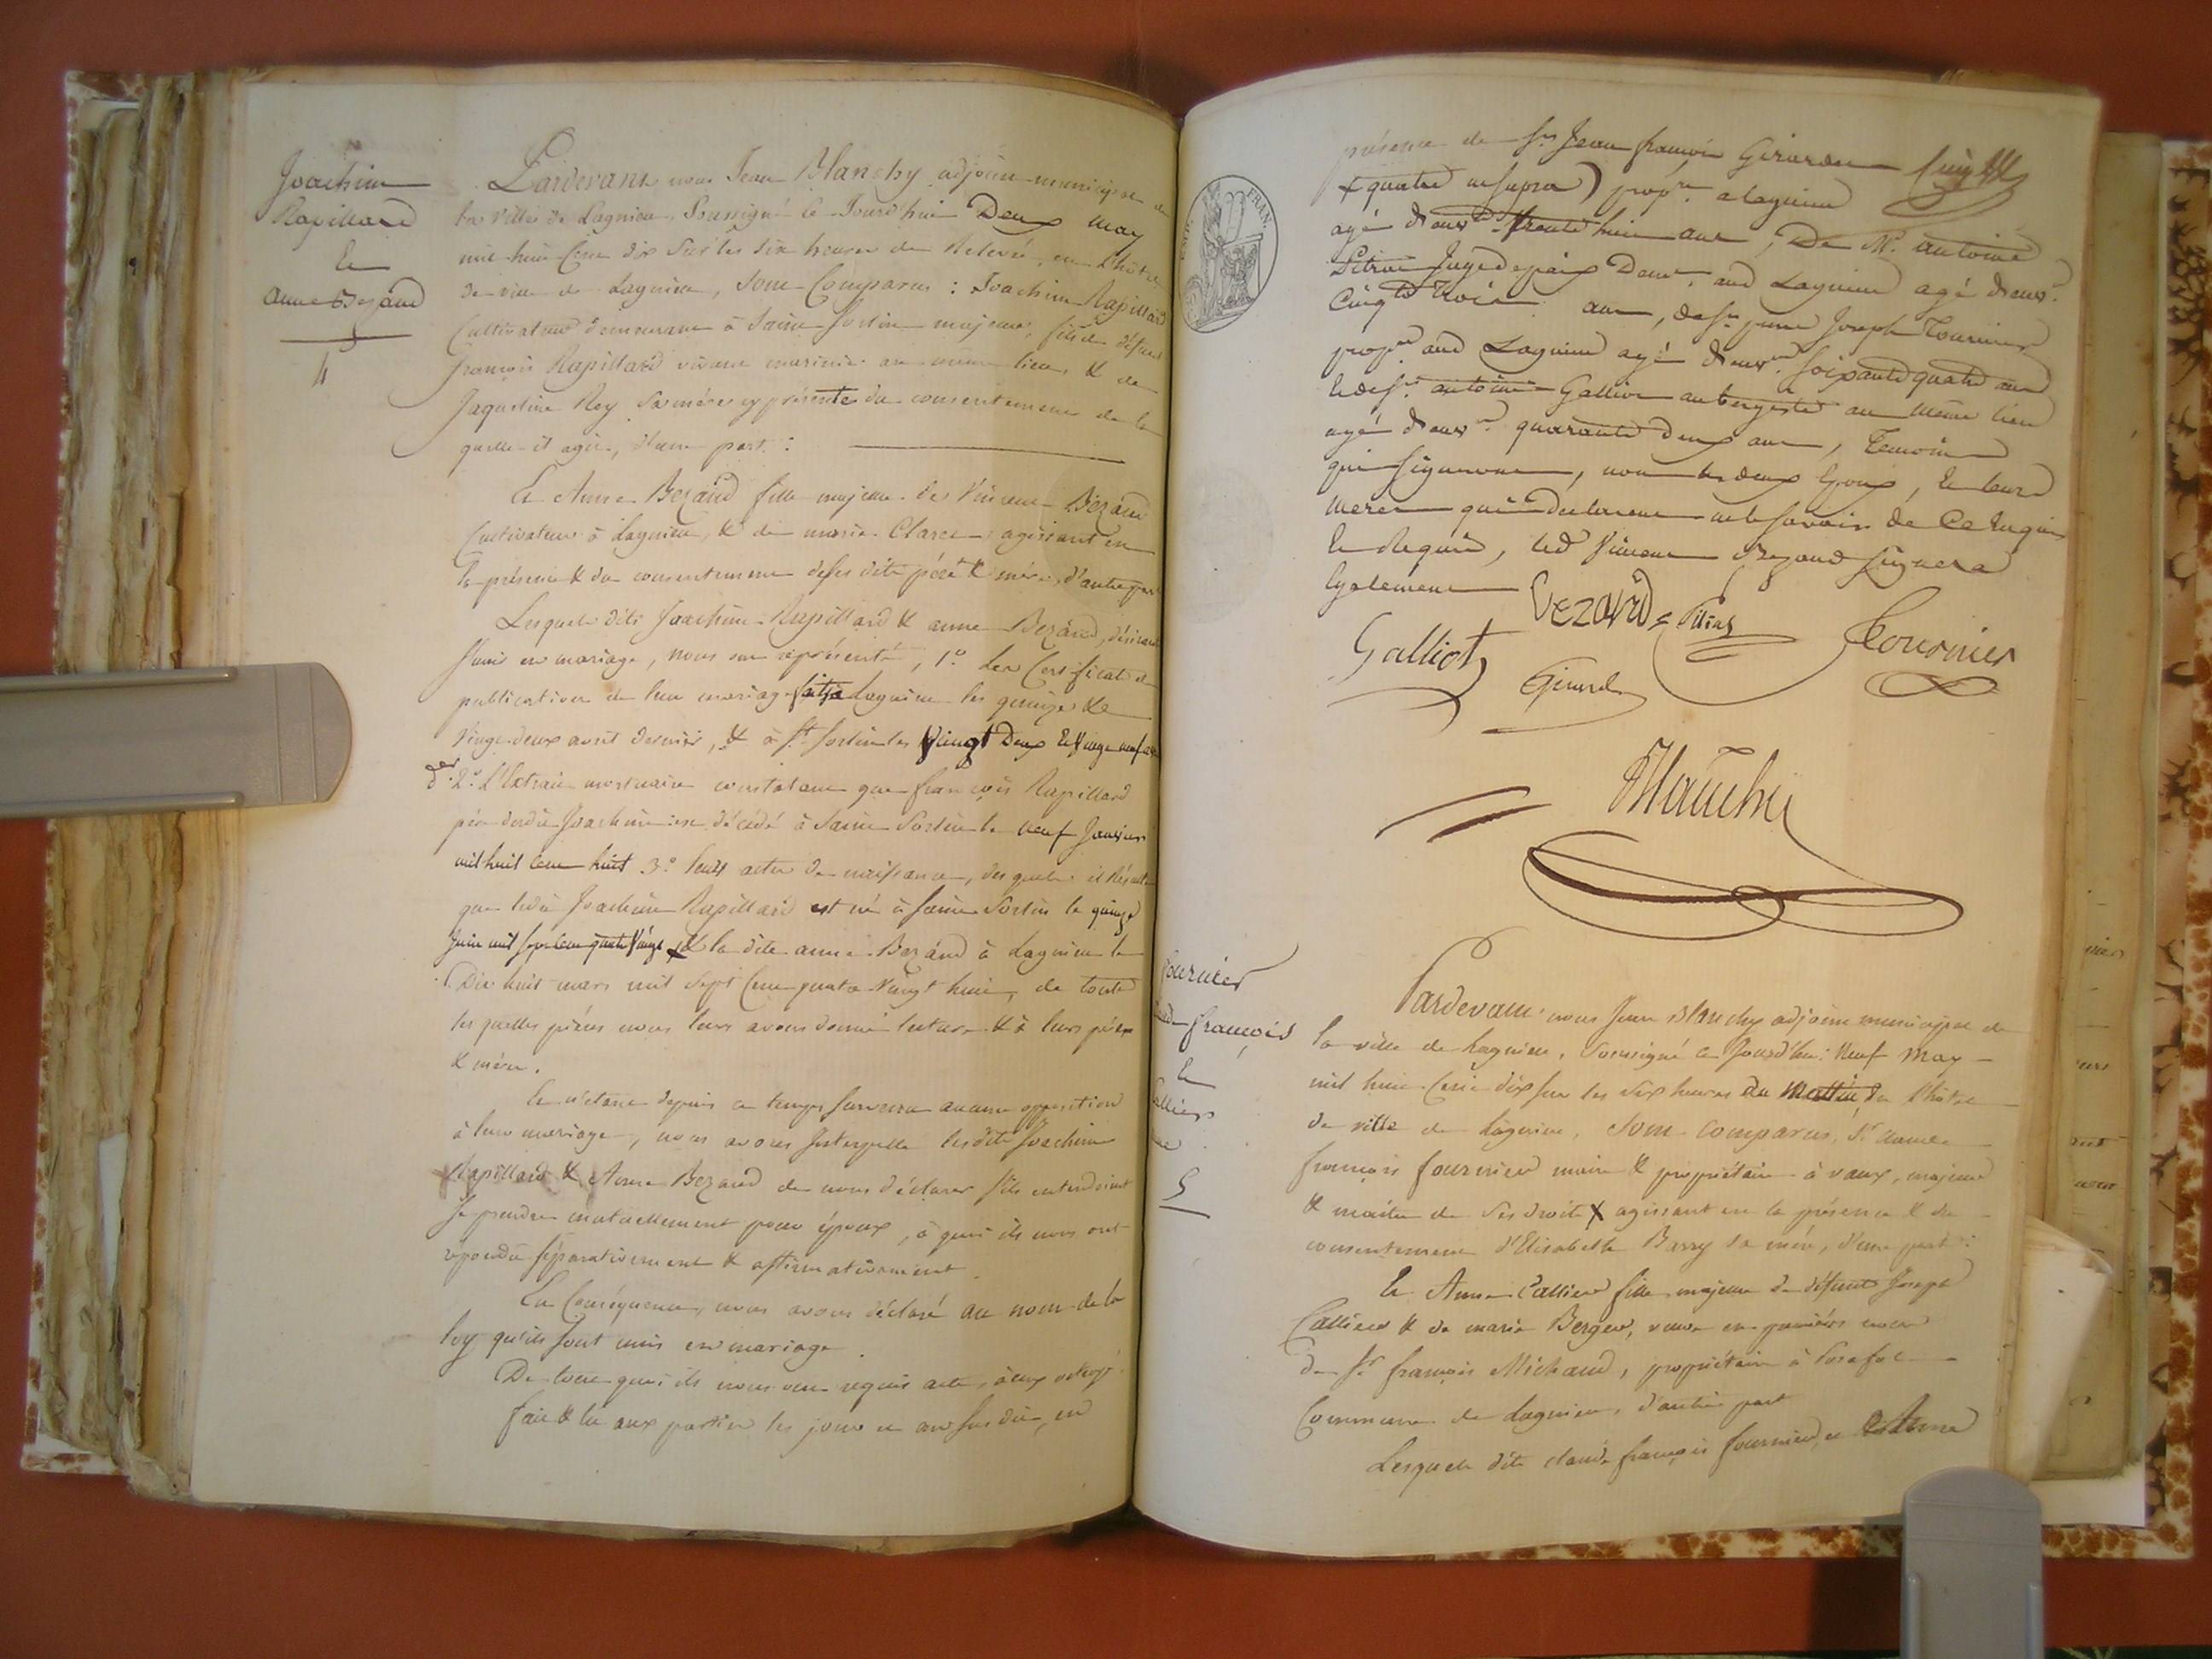 Joachim
Rapillard
Et
Anne Bezand
4
Pardevant nous Jean Blanchy adjoint municipal de
la ville de Lagnieu, Soussigné le Jourd'hui Deux may
mil huit Cent dix Sur les six heures de Relevée, en L'hôtel
de ville de Lagnieu, Sont Comparus : Joachim Rapillard
Cultivateur demeurant à Saint Sorlin majeur, fils de défunt
François Rapillard vivant marinier au même lieu, & de
Jaqueline Rey sa mère cy présente du consentement de la
quelle il agit, d'une part :
Et Anne Bezand fille majeure de Vincent Bezand
Cultivateur à Lagnieu, & de marie Claret agissant en
la présence & du consentement de ses dits père & mère, d'autre part
Lesquels dits Joachim Rapillard & anne Bezand, désirant
s'unir en mariage, nous ont représenté, 1° Les Certificats de
publication de leur mariage faits à Lagnieu les quinze &
vingt deux avril dernier, & à St Sorlin les vingt Deux Et vingt neuf
der 2° L'Extrait mortuaire constatant que françois Rapillard
père dudit Joachim est décédé à Saint Sorlin le neuf Janvier
mil huit Cent huit 3° leurs actes de naissance, desquels il Résulte
que ledit Joachim Rapillard est né à Saint Sorlin le quinze
Juin mil sept Cent quatre vingt & la dite anne Bezand à Lagnieu le
Dix huit mars mil Sept Cent quatre vingt huit, de toutes
les quelles pièces nous leurs avons donné lecture & à leurs père
& mère.
Et n'étant depuis ce temps survenu aucune opposition
à leur mariage, nous avons Interpellé lesdits Joachim
Rapillard & Anne Bezand de nous déclarer s'ils entendoient
se prendre mutuellement pour époux, à quoi ils nous ont
répondu séparativement & affirmativement
En Conséquence, nous avons déclaré au nom de la
loy qu'ils sont unis en mariage
De tout quoi ils nous ont requis acte, à eux octroyé
fait & lu aux parties les jour et an susdit, en
présence de Sr Jean françois Girard
x quatre ut supra) propre a lagnieu
agé d'envn trente huit ans, De Mr antoine
Juge de paix Demt aud Lagnieu agé d'envn
Cinqte trois ans, de Sr Joseph Tournier
propre aud Lagnieu agé d'envn soixante quatre ans
et de Sr antoine Galliot aubergiste au même lieu
agé d'envn quarante deux ans, Temoins
qui signeront, non les deux Epoux, et leurs
meres qui ont declaré ne le savoir de Ce Enquis
et Requis, led Vincent Bezand signera
Egalement
Bezard
Galliot
Girard
Tournier
Blanchy
EMP. FRAN.
fournier
françois
Et
5
Pardevant nous Jean Blanchy adjoint municipal de
la ville de Lagnieu, soussigné ce Jourd'hui neuf may
mil huit Cent dix sur les six heures du Mattin, En l'hôtel
de ville de Lagnieu, Sont Comparus, Sr claude
françois fournier maire & propriétaire à vaux, majeur
& maitre de ses droits x agissant en la présence & du
consentement d'Elisabeth Barry sa mère, d'une part :
Et Anne Callier fille majeure de défunts Joseph
Callier & de marie Berger, veuve en premières noces
de Sr françois Michaud, propriétaire à Posafol
Commune de Lagnieu, d'autre part
Lesquels dits claude françois fournier et Anne